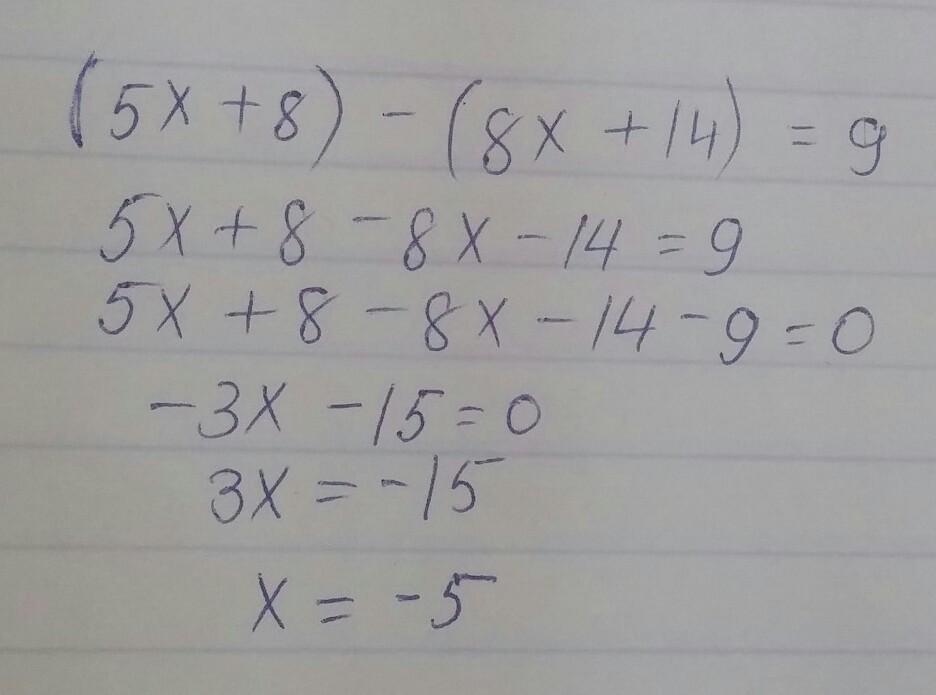 (5x + 8) - (8x + 14) = 9
5x + 8 - 8x - 14 = 9
5x + 8 - 8x - 14 - 9 = 0
-3x - 15 = 0
3x = -15
x = -5